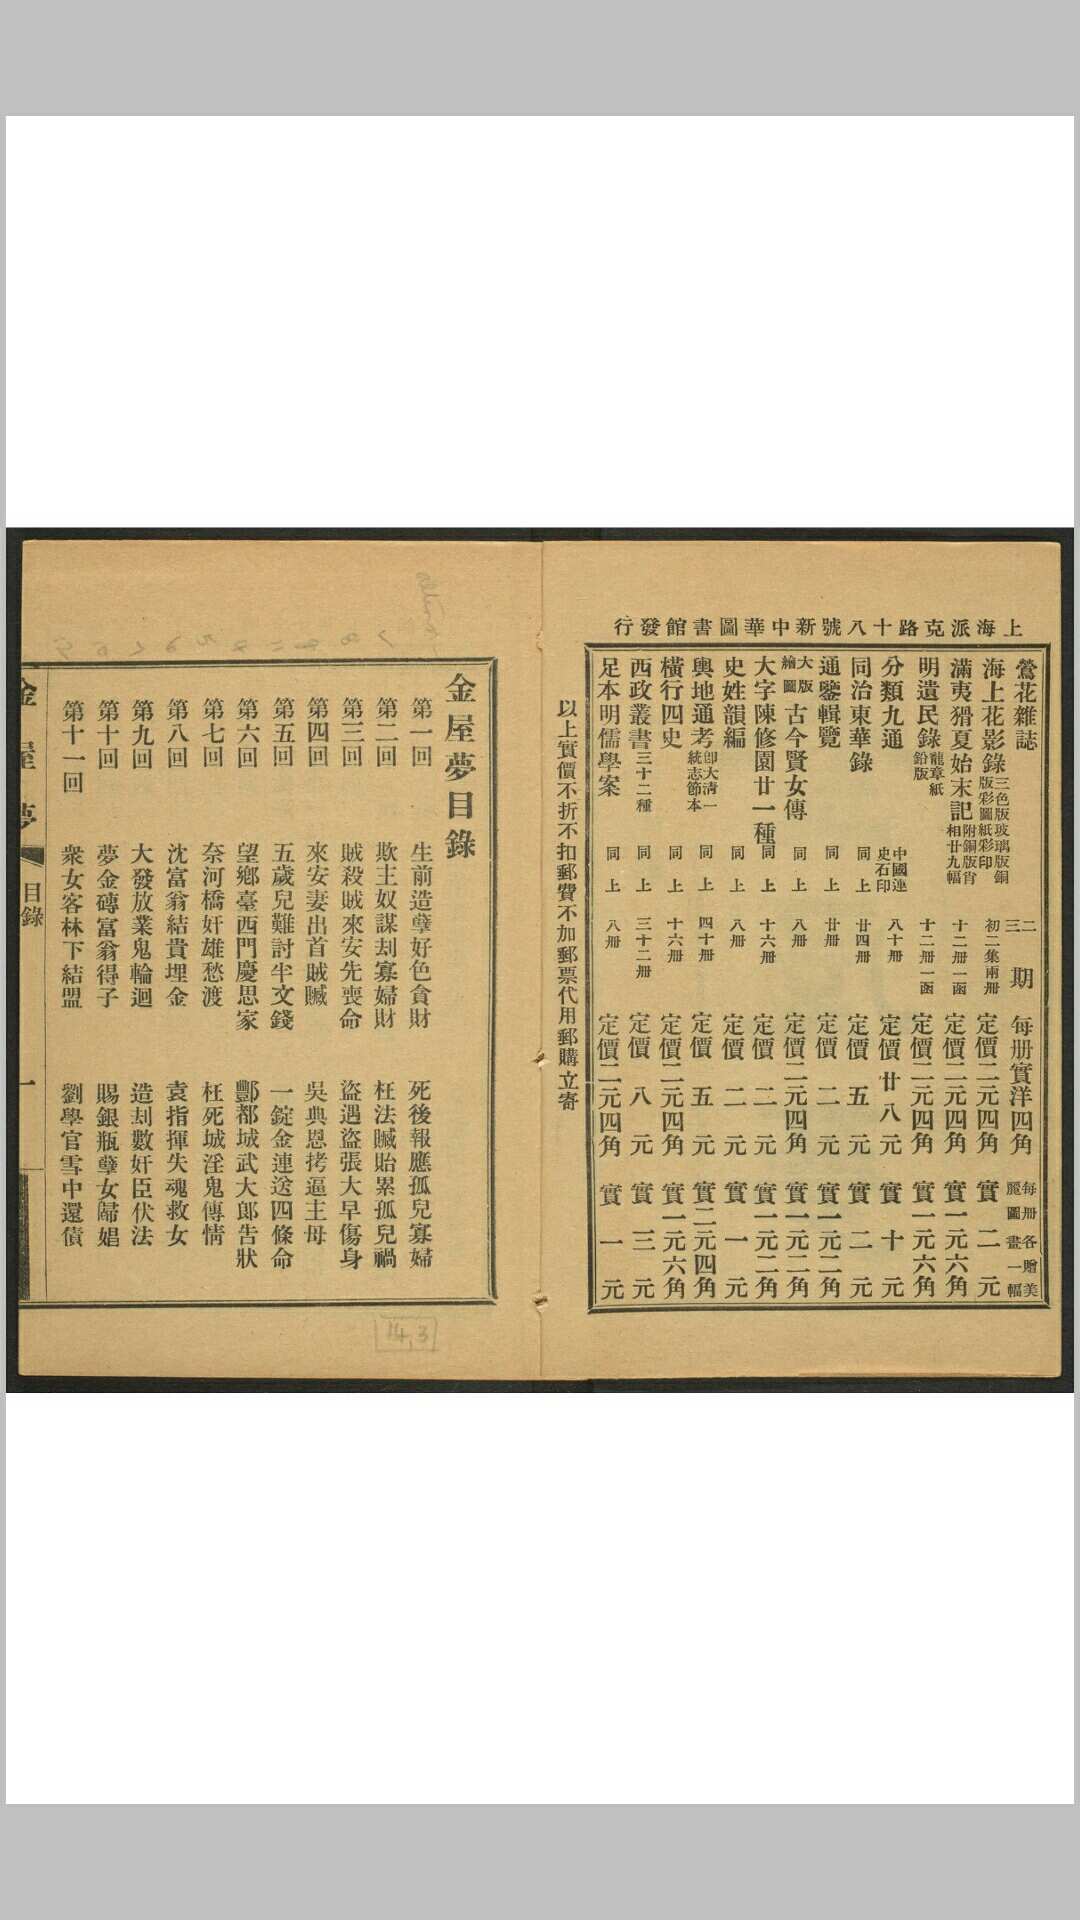 上海派克路十八號新中華圖書館發行
鶯花雜誌 二三期 每册實洋四角 每册各贈美麗圖畫一幅
海上花影錄 三色版玻璃版銅版彩圖紙彩印 初二集兩册 定價二元四角 實二元
滿夷猾夏始末記 附銅版肖相廿九幅 十二册一函 定價二元四角 實一元六角
明遺民錄 龍章紙鉛版 十二册一函 定價二元四角 實一元六角
分類九通 中國連史石印 八十册 定價廿八元 實十元
同治東華錄 同上 廿四册 定價五元 實二元
通鑒輯覽 同上 廿册 定價二元 實一元二角
大版繪圖古今賢女傳 同上 八册 定價二元四角 實一元二角
大字陳修園廿一種 同上 十六册 定價二元 實一元二角
史姓韻編 同上 八册 定價二元 實一元
輿地通考 卽大淸一統志節本 同上 四十册 定價五元 實二元四角
橫行四史 同上 十六册 定價二元四角 實一元六角
西政叢書 三十二種 同上 三十二册 定價八元 實三元
足本明儒學案 同上 八册 定價二元四角 實一元
以上實價不折不扣郵費不加郵票代用郵購立寄
金屋夢目錄
第一回 生前造孽好色貪財 死後報應孤兒寡婦
第二回 欺主奴謀刦寡婦財 枉法贓貽累孤兒禍
第三回 賊殺賊來安先喪命 盜遇盜張大早傷身
第四回 來安妻出首賊贓 吳典恩拷逼主母
第五回 五歲兒難討半文錢 一錠金連送四條命
第六回 望鄉臺西門慶思家 酆都城武大郎吿狀
第七回 奈河橋奸雄愁渡 枉死城淫鬼傳情
第八回 沈富翁結貴埋金 袁指揮失魂救女
第九回 大發放業鬼輪迴 造刦數奸臣伏法
第十回 夢金磚富翁得子 賜銀瓶孽女歸娼
第十一回 衆女客林下結盟 劉學官雪中還債
金屋夢 目錄 一
14,3